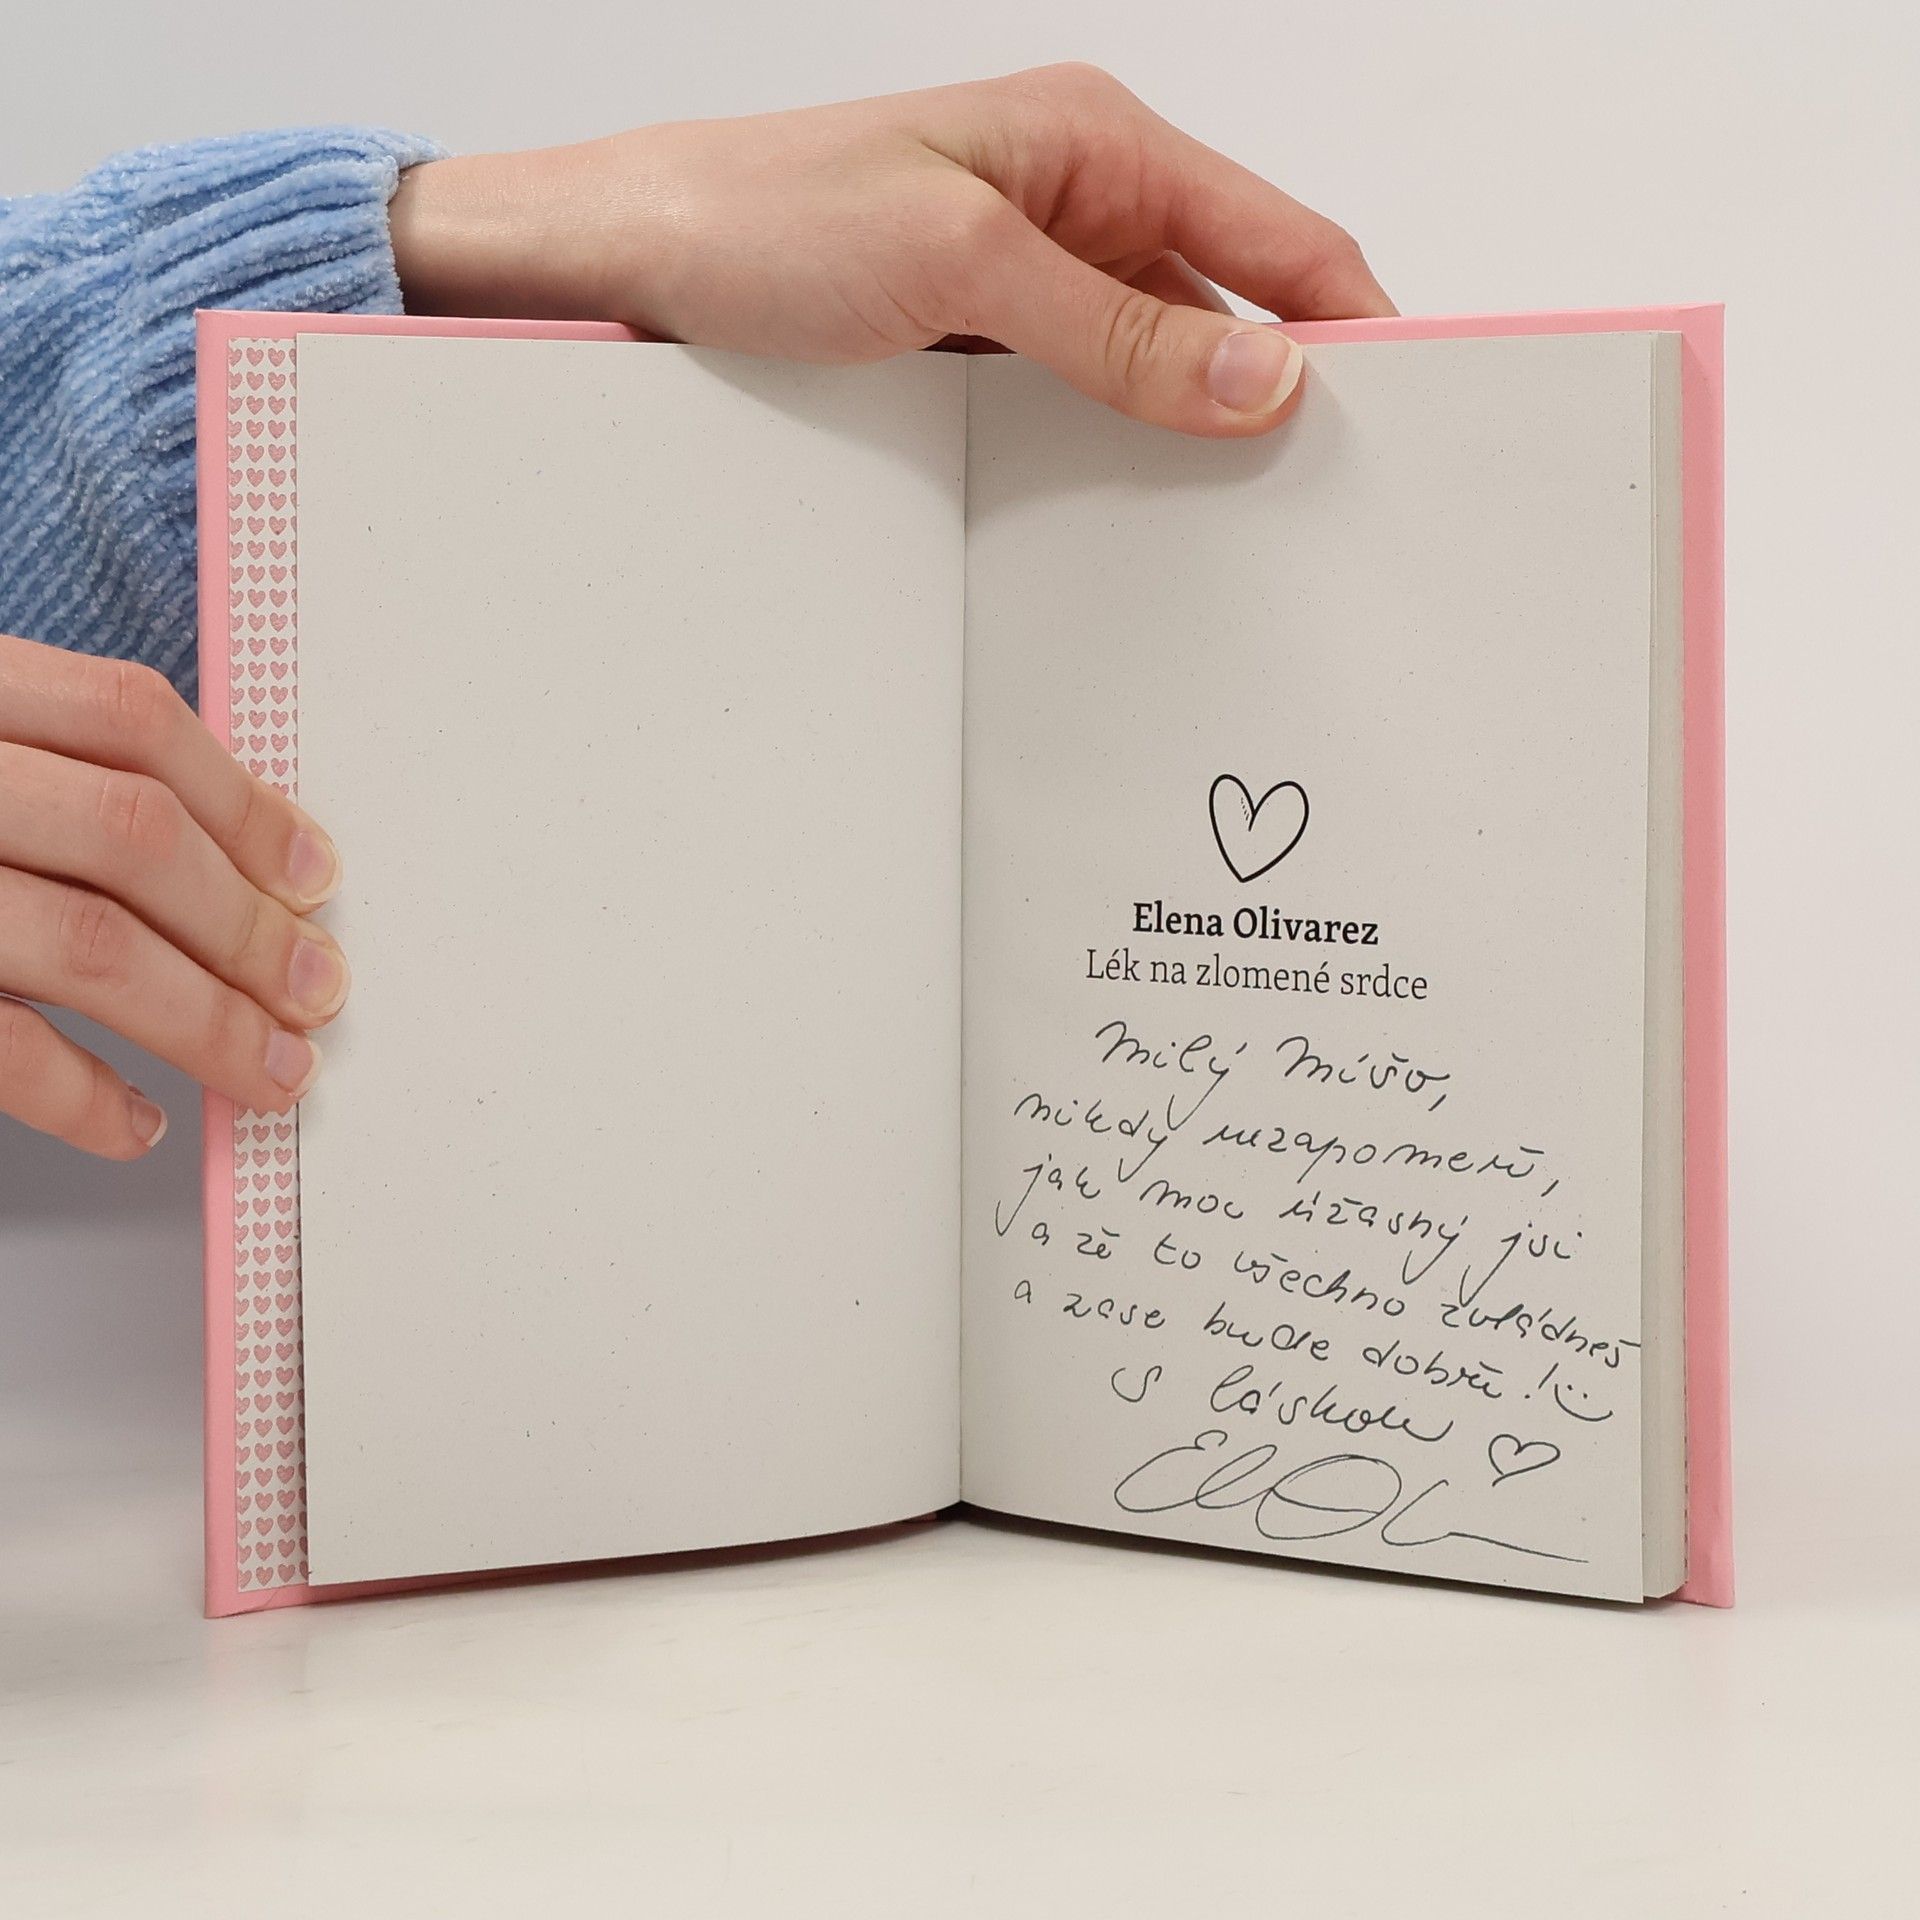 Elena Olivarez
Lék na zlomené srdce
Milý Míšo,
nikdy nezapomeň,
jak moc úžasný jsi
a že to všechno zvládneš
a zase bude dobře! :)
S láskou ♡